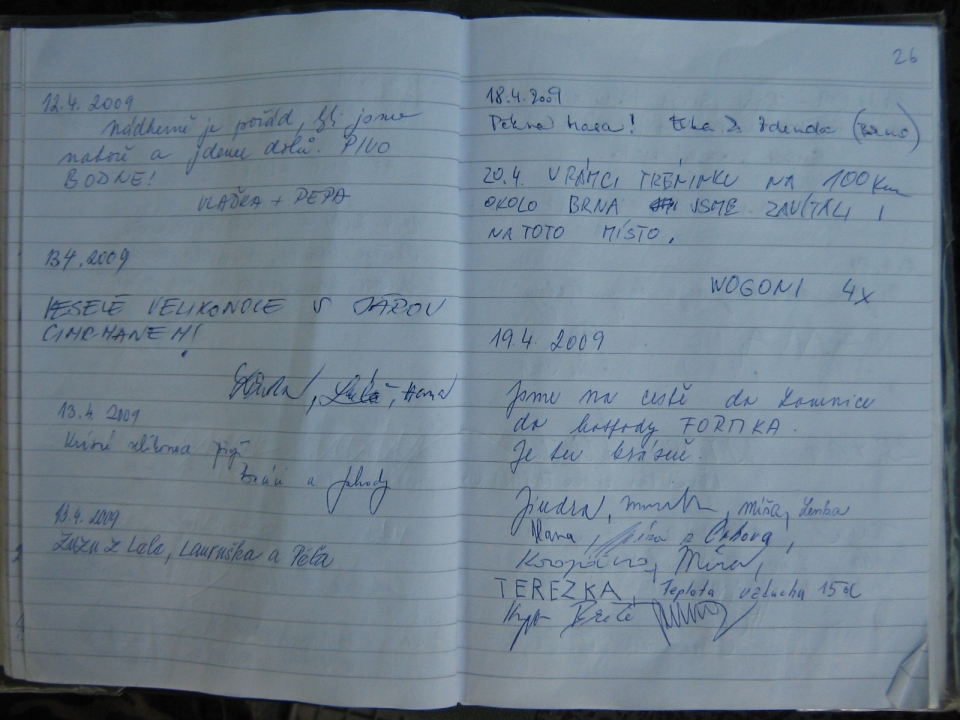 12.4. 2009
Nádherně je pořád, byli jsme
nahoře a jdeme dolů. PIVO
BODNE!
VLAĎKA + PEPA
13.4.2009
VESELÉ VELIKONOCE S JÁROU
CIMRMANEM!
, Hana
13.4. 2009
přejí
a
13.4. 2009
Zuzu z Lelo, Lauruška a Péťa
26
18.4.2009
Pěkná trasa! Zdenda (Brno)
20.4. V RÁMCI TRÉNINKU NA 100 Km
OKOLO BRNA JSME ZAVÍTALI I
NA TOTO MÍSTO.
WOGONI 4x
19.4. 2009
Jsme na cestě do Lomnice
do hospody FORTIKA.
Je tu krásně.
Jindra, , Míša, Lenka
Hana, z ,
, Míra,
TEREZKA, Teplota vzduchu 15°C